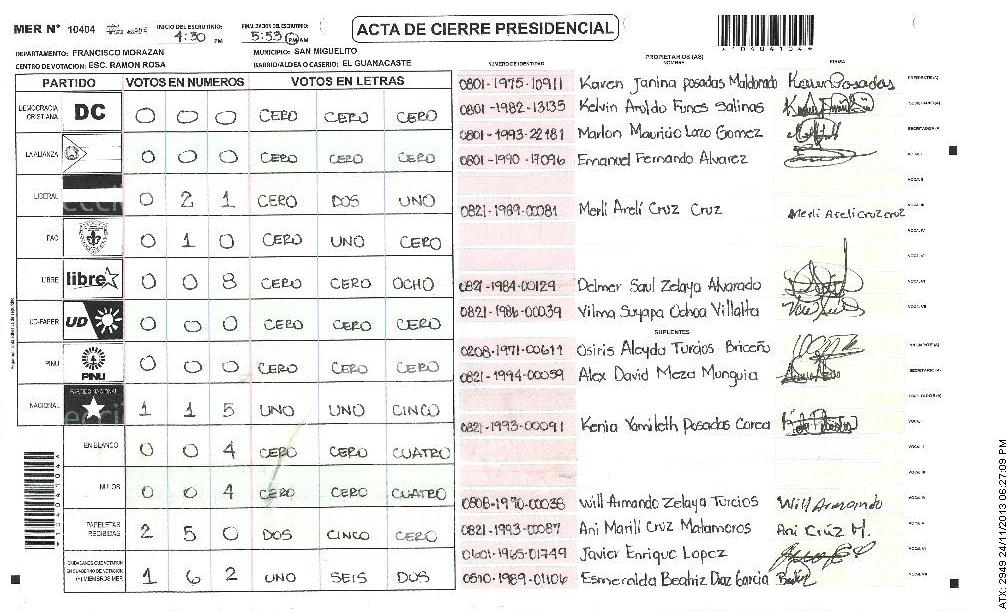 MER Nº 10404 INICIO DEL ESCRUTINIO: 4:30 PM FINALIZACION DEL ESCRUTINIO: 5:53 PM AM ACTA DE CIERRE PRESIDENCIAL
*10404104*
DEPARTAMENTO: FRANCISCO MORAZAN MUNICIPIO: SAN MIGUELITO
CENTRO DE VOTACION: ESC. RAMON ROSA BARRIO/ALDEA O CASERIO: EL GUANACASTE
NUMERO DE IDENTIDAD PROPIETARIOS (AS) NOMBRE FIRMA
PARTIDO VOTOS EN NUMEROS VOTOS EN LETRAS
DEMOCRACIA CRISTIANA DC 0 0 0 CERO CERO CERO
LA ALIANZA 0 0 0 CERO CERO CERO
LIBERAL 0 2 1 CERO DOS UNO
PAC 0 1 0 CERO UNO CERO
LIBRE libre 0 0 8 CERO CERO OCHO
UD-FAPER UD 0 0 0 CERO CERO CERO
PINU PINU 0 0 0 CERO CERO CERO
NACIONAL PARTIDO NACIONAL 1 1 5 UNO UNO CINCO
EN BLANCO 0 0 4 CERO CERO CUATRO
NULOS 0 0 4 CERO CERO CUATRO
PAPELETAS RECIBIDAS 2 5 0 DOS CINCO CERO
CIUDADANOS QUE VOTARON EN CUADERNO DE VOTACION (+) MIEMBROS MER 1 6 2 UNO SEIS DOS
0801-1975-10911 Karen Janina posadas Maldonado Karen Posadas PRESIDENTE(A)
0801-1982-13135 Kelvin Aroldo Funes Salinas SECRETARIO(A)
0801-1993-22181 Marlon Mauricio Lazo Gomez ESCRUTADOR(A)
0801-1990-17096 Emanuel Fernando Alvarez VOCAL I
VOCAL II
0821-1989-00081 Merli Areli Cruz Cruz Merli Areli cruz cruz VOCAL III
VOCAL IV
VOCAL V
0821-1984-00129 Delmer Saul Zelaya Alvarado VOCAL VI
0821-1986-00039 Vilma Suyapa Ochoa Villalta VOCAL VII
SUPLENTES
0208-1971-00611 Osiris Aleyda Turcios Briceño
0821-1994-00059 Alex David Meza Munguia SECRETARIO(A)
ESCRUTADOR(A)
0821-1993-00091 Kenia Yamileth Posadas Carea VOCAL I
VOCAL II
VOCAL III
0808-1970-00035 Will Armando Zelaya Turcios Will Armando VOCAL IV
0821-1993-00087 Ani Marili Cruz Matamoros Ani Cruz M. VOCAL V
0601-1965-01749 Javier Enrique Lopez VOCAL VI
0510-1989-01106 Esmeralda Beatriz Diaz Garcia VOCAL VII
*10404104*
ATX: 2949 24/11/2013 06:27:09 PM